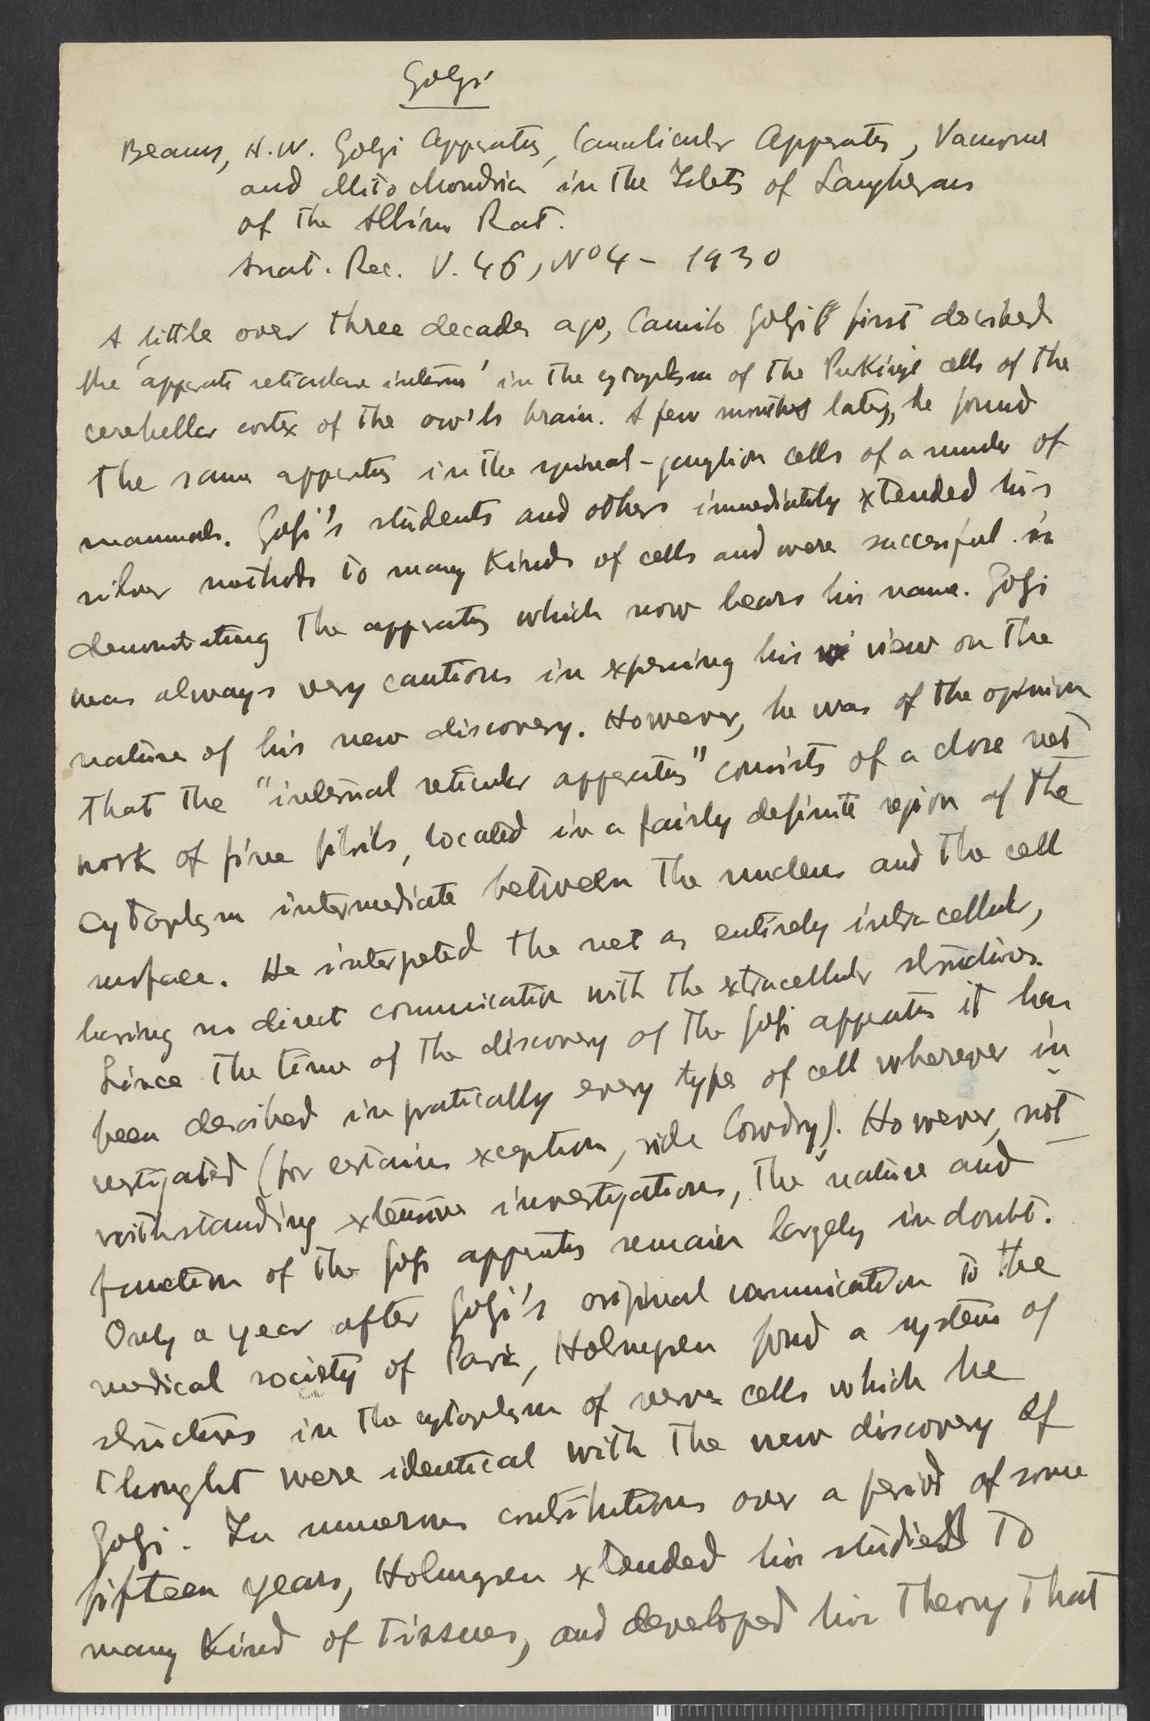 Golgi
Beams, H.W. Golgi Apparatus, Canalicular Apparatus, Vacuome
and Mitochondria in the Islets of Langherans
of the Albino Rat.
Anat. Rec. V. 46, Nº 4 - 1930
A little over three decades ago, Camilo Golgi first described
the 'apparato reticolare interno' in the cytoplasm of the Purkinje cells of the
cerebellar cortex of the owl's brain. A few months later, he found
the same apparatus in the spinal-ganglion cells of a number of
mammals. Golgi's students and others immediately extended his
silver methods to many kinds of cells and were successful in
demonstrating the apparatus which now bears his name. Golgi
was always very cautious in expressing his view on the
nature of his new discovery. However, he was of the opinion
that the "internal reticular apparatus" consists of a close net
work of fine fibrils, located in a fairly definite region of the
cytoplasm intermediate between the nucleus and the cell
surface. He interpeted the net as entirely intracellular,
having no direct communication with the extracellular structures.
Since the time of the discovery of the Golgi apparatus it has
been described in pratically every type of cell wherever in
vestigated (for certains exception, vide Cowdry). However, not
withstanding extensive investigations, the nature and
function of the Golgi apparatus remain largely in doubt.
Only a year after Golgi's original communication to the
medical society of Pavia, Holmgren found a system of
structures in the cytoplasm of nerve cells which he
thought were identical with the new discovery of
Golgi. In numerous contributions over a period of some
fifteen years, Holmgren extended his studies to
many kind of tissues, and developed his theory that